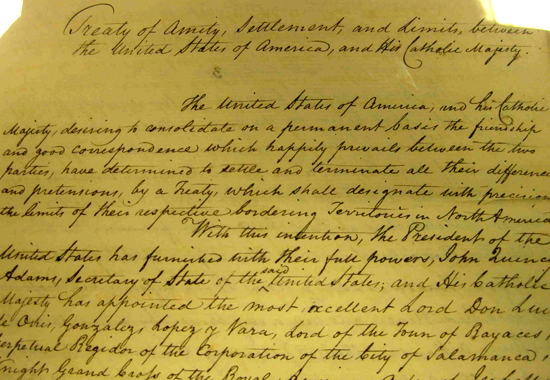 Treaty of Amity, Settlement, and Limits, between
the United States of America, and His Catholic Majesty.
The United States of America, and his Catholic
Majesty, desiring to consolidate on a permanent basis the friendship
and good correspondence which happily prevails between the two
parties, have determined to settle and terminate all their difference
and pretensions, by a Treaty, which shall designate with precision
the limits of their respective bordering Territories in North America
With this intention, the President of the
United States has furnished with their full powers, John Quinc
Adams, Secretary of State of the said United States; and His Catholic
Majesty has appointed the most excellent Lord Don Lui
e Onis, Gonzalez, Lopez y Vara, Lord of the Town of Rayaces,
erpetual Regidor of the Corporation of the City of Salamanca,
night Grand Cross of the Royal